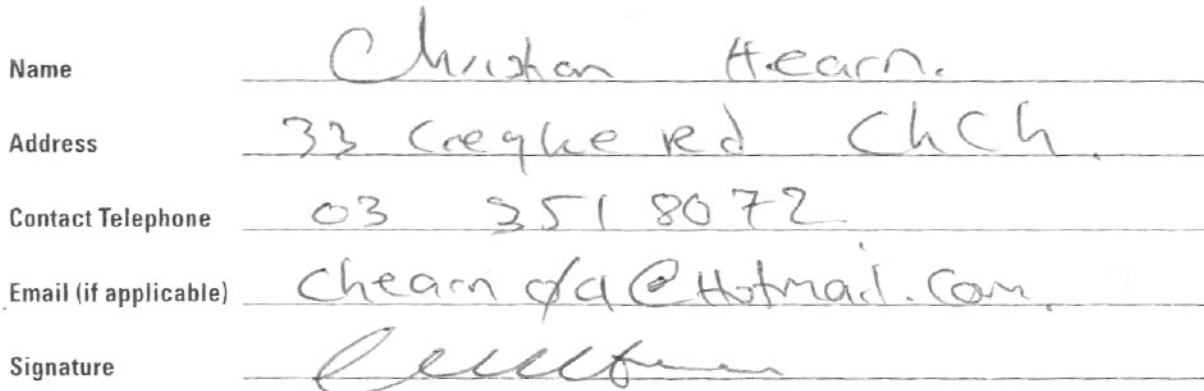 Name Christian Hearn.
Address 33 Creyke Rd ChCh.
Contact Telephone 03 351 8072
Email (if applicable) @Hotmail.com.
Signature